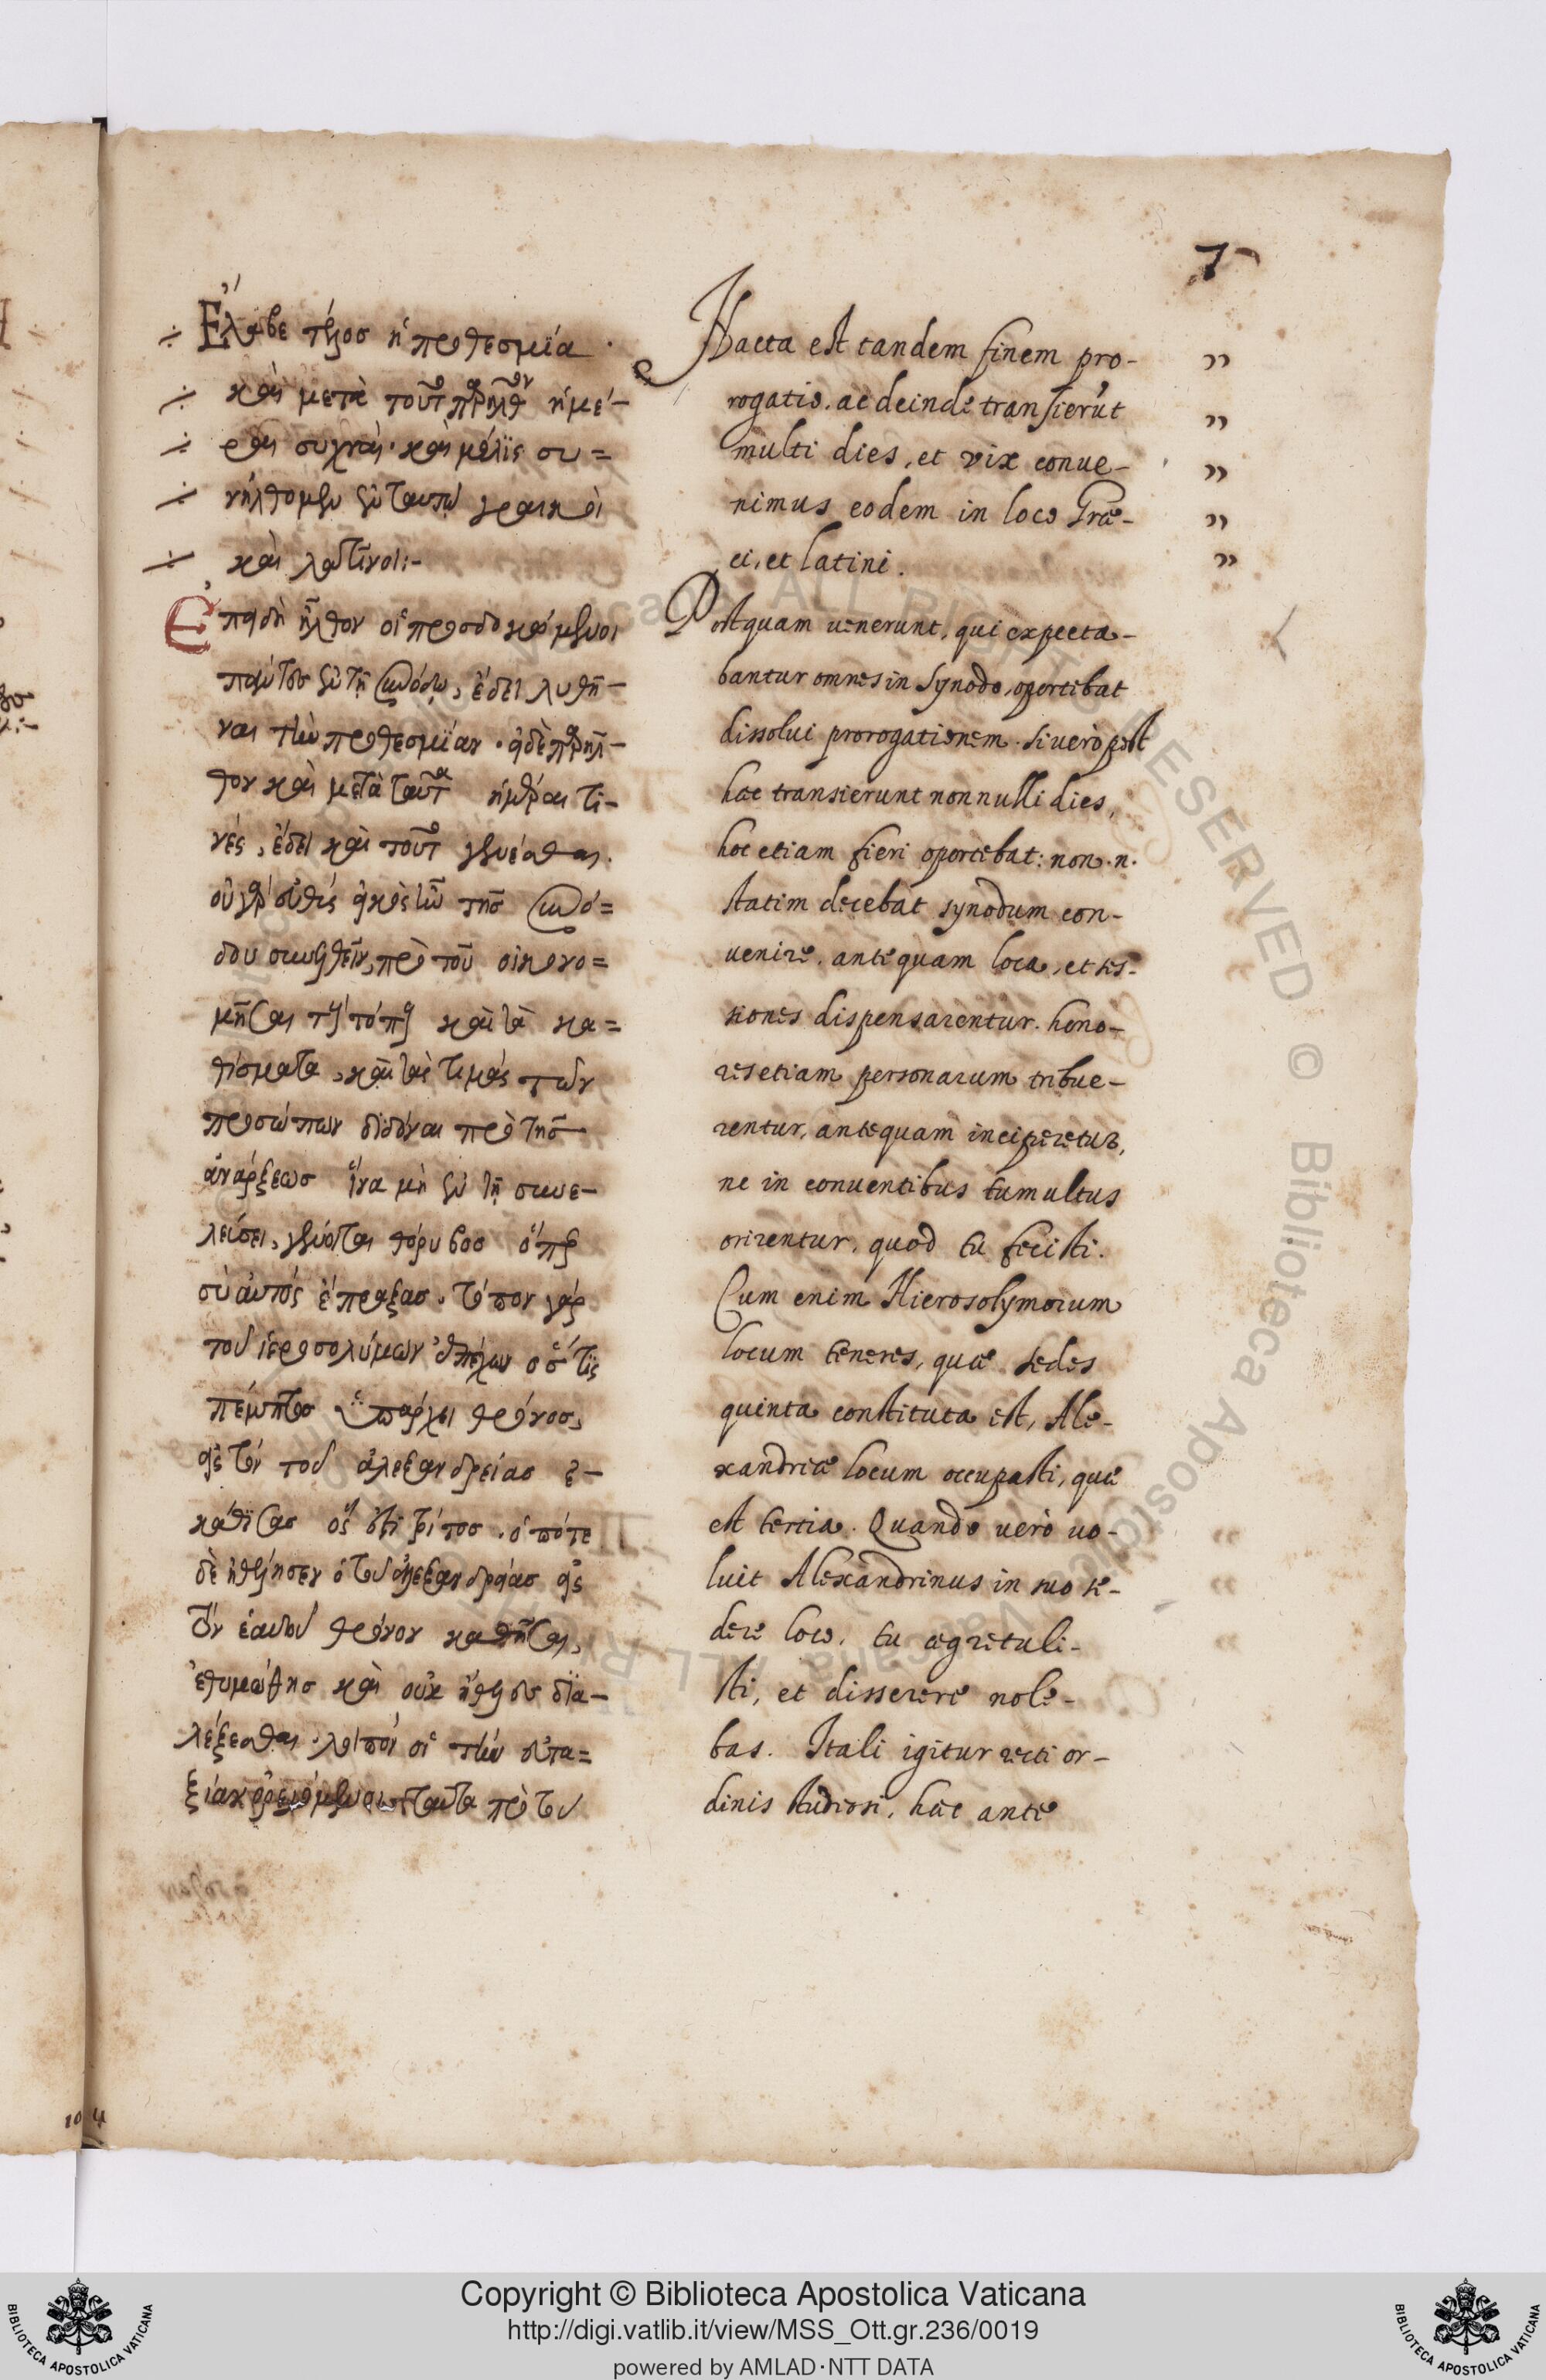 7
Ἔλαβε τέλος ἡ προθεσμία·
καὶ μετὰ τοῦτο παρῆλθον ἡμέ-
ραι συχναί· καὶ μόλις συ=
νήλθομεν ἐν ταυτῷ γραικοὶ
καὶ λατῖνοι:-
Ἐπειδὴ ἦλθον οἱ προσδοκώμενοι
πάντες ἐν τῇ συνόδῳ, ἔδει λυθῆ-
ναι τὴν προθεσμίαν· εἰ δὲ παρῆλ-
θον καὶ μετὰ ταῦτα ἡμέραι τι-
νές, ἔδει καὶ τοῦτο γενέσθαι.
οὐ γὰρ εὐθὺς εἰκὸς ἦν τῆς συνό=
δου συνελθεῖν, πρὸ τοῦ οἰκονο=
μῆσαι τοὺς τόπους καὶ τὰ κα=
θίσματα, καὶ τὰς τιμὰς τῶν
προσώπων διδόναι πρὸ τῆς
ἀνάρξεως ἵνα μὴ ἐν τῇ συνε-
λεύσει, γένηται θόρυβος ὅπερ
σὺ αὐτός ἔπραξας. τόπον γάρ
τοῦ ἱεροσολύμων ἐπέχων ὅς τις
πέμπτος ὑπάρχει θρόνος,
εἰς τὸν τοῦ ἀλεξανδρείας ἐ-
κάθισας ὅς ἐστι τρίτος. ὁπότε
δὲ ἠθέλησεν ὁ τοῦ ἀλεξανδρείας εἰς
τὸν ἑαυτοῦ θρόνον καθῆσαι,
ἐθυμώθης καὶ οὐκ ἤθελες δια-
λέξεσθαι. λοιπὸν οἱ τὴν εὐτα=
ξίαν ταῦτα πρὸ τοῦ
Nacta est tandem finem pro- ”
rogatio. ac deinde transierūt ”
multi dies, et vix conue- ”
nimus eodem in loco Græ- ”
ci, et latini. ”
Postquam uenerunt, qui expecta-
bantur omnes in synodo, oportebat
dissolui prorogationem. si uerò post
hæc transierunt nonnulli dies,
hoc etiam fieri oportebat: non .n.
statim decebat synodum con-
uenire, antequam loca, et ses-
siones dispensarentur. hono-
res etiam personarum tribue-
rentur, antequam inciperetur,
ne in conuentibus tumultus
orirentur, quod tu fecisti.
Cum enim Hierosolymorum
locum teneres, quæ sedes
quinta constituta est, Ale-
xandriæ locum occupasti, quæ
est tertia. Quando uerò uo-
luit Alexandrinus in suo se-
dere loco, tu ægre tuli-
sti, et disserere nole-
bas. Itali igitur recti or-
dinis studiosi, hæc ante
104
Copyright © Biblioteca Apostolica Vaticana
http://digi.vatlib.it/view/MSS_Ott.gr.236/0019
powered by AMLAD·NTT DATA